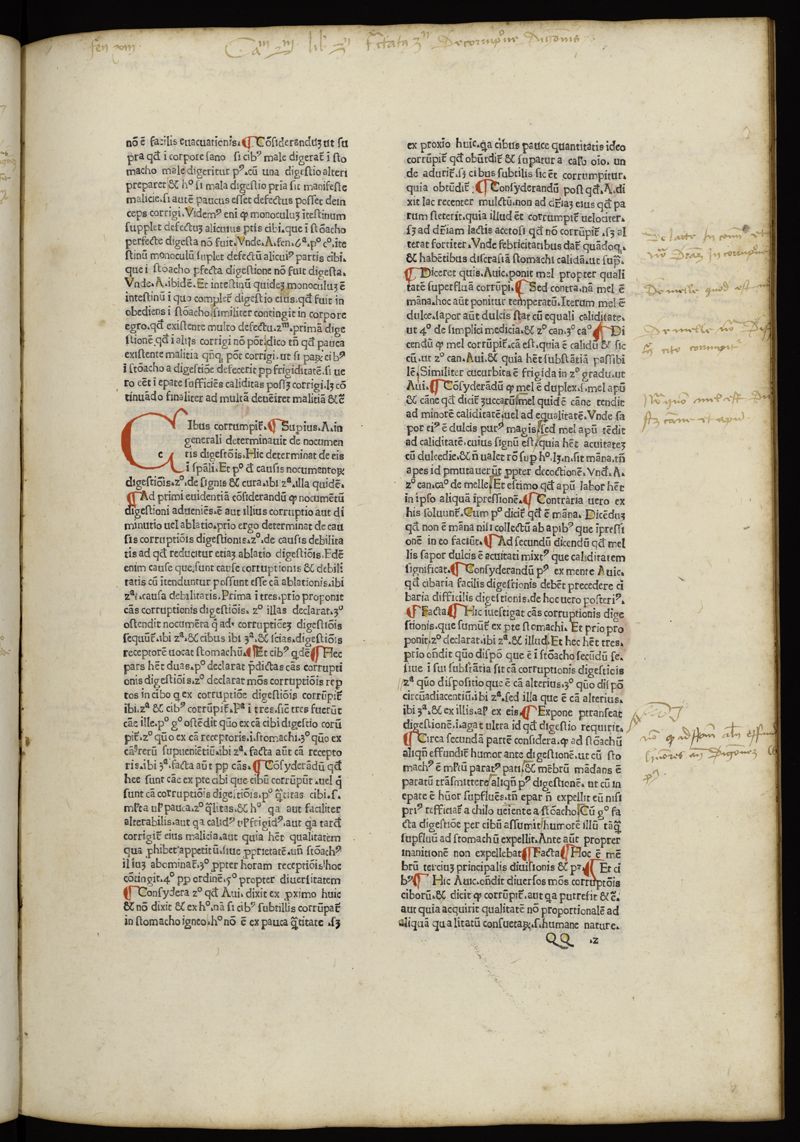 fen xiii
nō ē facilis euacuationis. ¶Cōsiderandūꝫ ut su
pra qđ i corpore sano si cibꝰ male digerať i sto
macho male digeritur pꝰ. cū una digestio alteri
preparet & hꝰ si mala digestio pria sit manifeste
malicie. si autē paucus esset defectus posset dein
ceps corrigi. Videmꝰ eni ꝙ monoculuꝫ itestinum
supplet defectuꝫ alicuius ptis cibi. que i stōacho
perfecte digesta nō fuit. Vnde. A. fen. 6ª. pº cº. ite
stinū monoculū suplet defectū alicuiꝰ partis cibi.
que i stoacho pfecta digestione nō fuit digesta.
Vnde. A. ibidē. Et intestinū quideꝫ monoculuꝫ ē
intestinū i quo compleť digestio eius. qđ fuit in
obediens i stōacho similiter contingit in corpore
egro. qđ existente multo defectu. zᵐ. primā dige
stionē qđ i alijs corrigi nō pōt. ideo tn̄ qđ pauca
existente malitia qn̄qꝫ pōt corrigi. ut si paꝝ cibꝰ
i stōacho a digestiōe defecerit pp frigiditatē. si ue
ro cēt i epate sufficiēs caliditas posꝫ corrigi. lꝫ cō
tinuādo finaliter ad multā deneiret malitiā &č
Cibus corrumpiť. ¶Supius. A. in
generali determinauit de nocumen
c ris digestōis. Hic determinat de eis
i spāli. Et pº đ causis nocumentoꝝ
digestiōis. zº. de signis & cura. ibi zª. illa quidē.
¶Ad primi euidentiā cōsiderandū ꝙ nocumētū
digestioni adueniēs. ē aut illius corruptio aut di
minutio uel ablatio. prio ergo determinat de cau
sis corruptiōis digestionis. zº. de causis debilita
tis ad qđ reducitur etiaꝫ ablatio digestiōis. Edē
enim cause que. sunt cause corruptionis & debili
tatis cū itenduntur possunt esse cā ablationis. ibi
zª. causa debalitatis. Prima i tres. prio proponit
cās corruptionis digestiōis. zº illas declarat. 3º
ostendit nocumēta q̄ ad. corruptiōeꝫ digestiōis
sequūť. ibi zª. & cibus ibi 3ª. & scias. digestiōis
receptorē uocat stomachū. ¶Et cibꝰ qđē ¶Hec
pars hēt duas. pº declarat pđictas cās corrupti
onis digestiōis. zº declarat mōs corruptiōis rep
tos in cibo q ex corruptiōe digestiōis corrūpiť
ibi. zª & cibꝰ corrūpiť. Pª i tres. sič tres fuerūt
cāe ille. pº gº ostēdit quō ex cā cibi digestio corū
piť. zº quō ex cā receptoris. i. stomachi. 3º quō ex
cā rerū supueniētiū. ibi zª. facta aūt cā recepto
ris. ibi 3ª. facta aūt pp cās. ¶Cōsyderādū qđ
hec sunt cāe ex pte cibi que cibū corrūpūt. uel q̄
sunt cā corruptiōis digestiōis. pº q̄titas cibi. s.
mlta ul pauca. zº. q̄litas. & hº qa aut faciliter
alterabilis. aut qa calidꝰ ul frigidꝰ. aut qa tardꝰ
corrigiť eius malicia. aut quia hēt qualitatem
qua phibeť appetitū. siue pprietatē. un̄ stōachꝰ
illiuꝫ abominať. 3º ppter horam receptiōis hoc
cōtingit. 4º pp ordinē. 5º propter diuersitatem
¶Consydera zº qđ Aui. dixit ex pximo huic
& nō dixit & ex hº. nā si cibꝰ subtillis corrūpať
in stomacho igneo. hº nō ē ex pauca q̄titate. sꝫ
ex proxio huic. qa cibus pauce quantitatis ideo
corrūpiť qđ obūdiť & supatur a caro oio. un
de aduriť. sꝫ ci bus subtilis sic ēt corrumpitur.
quia obtūdiť ¶Consyderandū post qđ. A. di
xit lac recenter mulctū. non ad driaꝫ eius qđ pa
rum steterit. quia illud ēt corrumpiť uelociter.
sꝫ ad driam lactis acetosi qđ nō corrūpiť. sꝫ al
terat fortiter. Vnde febricitatibus dať quādoqꝫ.
& habētibus discrasiā stomachi calidā. ut supꝰ.
¶Diceret quis. Auic. ponit mel propter quali
tatē superfluā corrūpi. ¶Sed contra. nā mel ē
māna. hoc aūt ponitur temperatū. Iterum mel ē
dulce. sapor aūt dulcis stat cū equali caliditate.
ut 4º de simplici medicīa. & zº can. 3º caº ¶Di
cendū ꝙ mel corrūpiť. cā est. quia ē calidū & sic
cū. ut zº can. Aui. & quia hēt substātiā passibi
lē. Similiter cucurbita ē frigida in zº gradu. ut
Aui. ¶Cōsyderādū ꝙ mel ē duplex. s. mel apū
& cāne qđ diciť zuccarū mel quidē cāne tendit
ad minorē caliditatē. uel ad equalitatē. Vnde sa
por eiꝰ ē dulcis purꝰ magis sed mel apū tēdit
ad caliditatē. cuius signū est quia hēt acuitateꝫ
cū dulcedie. & n̄ ualet rō sup hº. lꝫ. n. sit māna. tn̄
apes id pmutauerūt ppter decoctionē. Vnđ. A.
zº can. caº de melle. Et estimo qđ apū labor hēt
in ipso aliquā ipressionē. ¶Contraria uero ex
his soluunť. Cum pº diciť qđ ē māna. Dicēduꝫ
qđ non ē māna nisi collectū ab apibꝰ que ipressi
onē in eo faciūt. ¶Ad secundū dicendū qđ mel
lis sapor dulcis ē acuitati mixtꝰ que caliditatem
significat. ¶Consyderandū pꝰ ex mente Auic.
qđ cibaria facilis digestionis debēt precedere ci
baria difficilis digestionis. de hoc uero posteriꝰ.
¶Facta ¶Hic iuestigat cās corruptionis dige
stionis. que sumūť ex pte stomachi. Et prio pro
ponit. zº declarat. ibi zª. & illud. Et hec hēt tres.
prio ondit quō dispō que ē i stōacho secūdū se.
siue i sui substātia sit cā corruptionis digestiōis
zª quō dispositio que ē cā alterius. 3º quō dispō
circūadiacentiū. ibi zª. sed illa que ē cā alterius.
ibi 3ª. & ex illis. alꝰ ex eis. ¶Expone ptranseat
digestionē. i. agat ultra id qđ digestio requirit.
¶Circa secundā partē considera. ꝙ ad stōachū
aliqn̄ effundiť humor ante digestionē. ut cū sto
machꝰ ē mltū paratꝰ pati. & mēbrū mādans ē
paratū trāsmittere aliqn̄ pꝰ digestionē. ut cū in
epate ē hūor supfluēs. tn̄ epar n̄ expellit eū nisi
priꝰ reficiať a chilo ueiente a stōacho. Cū gº fa
cta digestiōe per cibū assumit humorē illū tāqꝫ
supfluū ad stomachū expellit. Ante aūt propter
inanitionē non expellebat ¶Facta ¶Hoc ē mē
brū terciuꝫ principalis diuisionis & pꝫ. ¶Et ci
bꝰ ¶Hic Auic. ondit diuersos mōs corruptōis
ciborū. & dicit ꝙ corrūpiť. aut qa putrefit &č.
aut quia acquirit qualitatē nō proportionalē ad
aliquā qualitatū consuetaꝝ. s. humane nature.
QQ .z